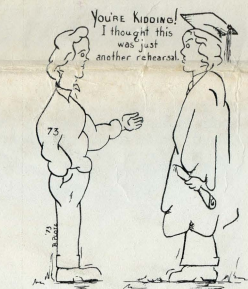 You're Kidding!
I thought this
was just
another rehearsal.
73
'73